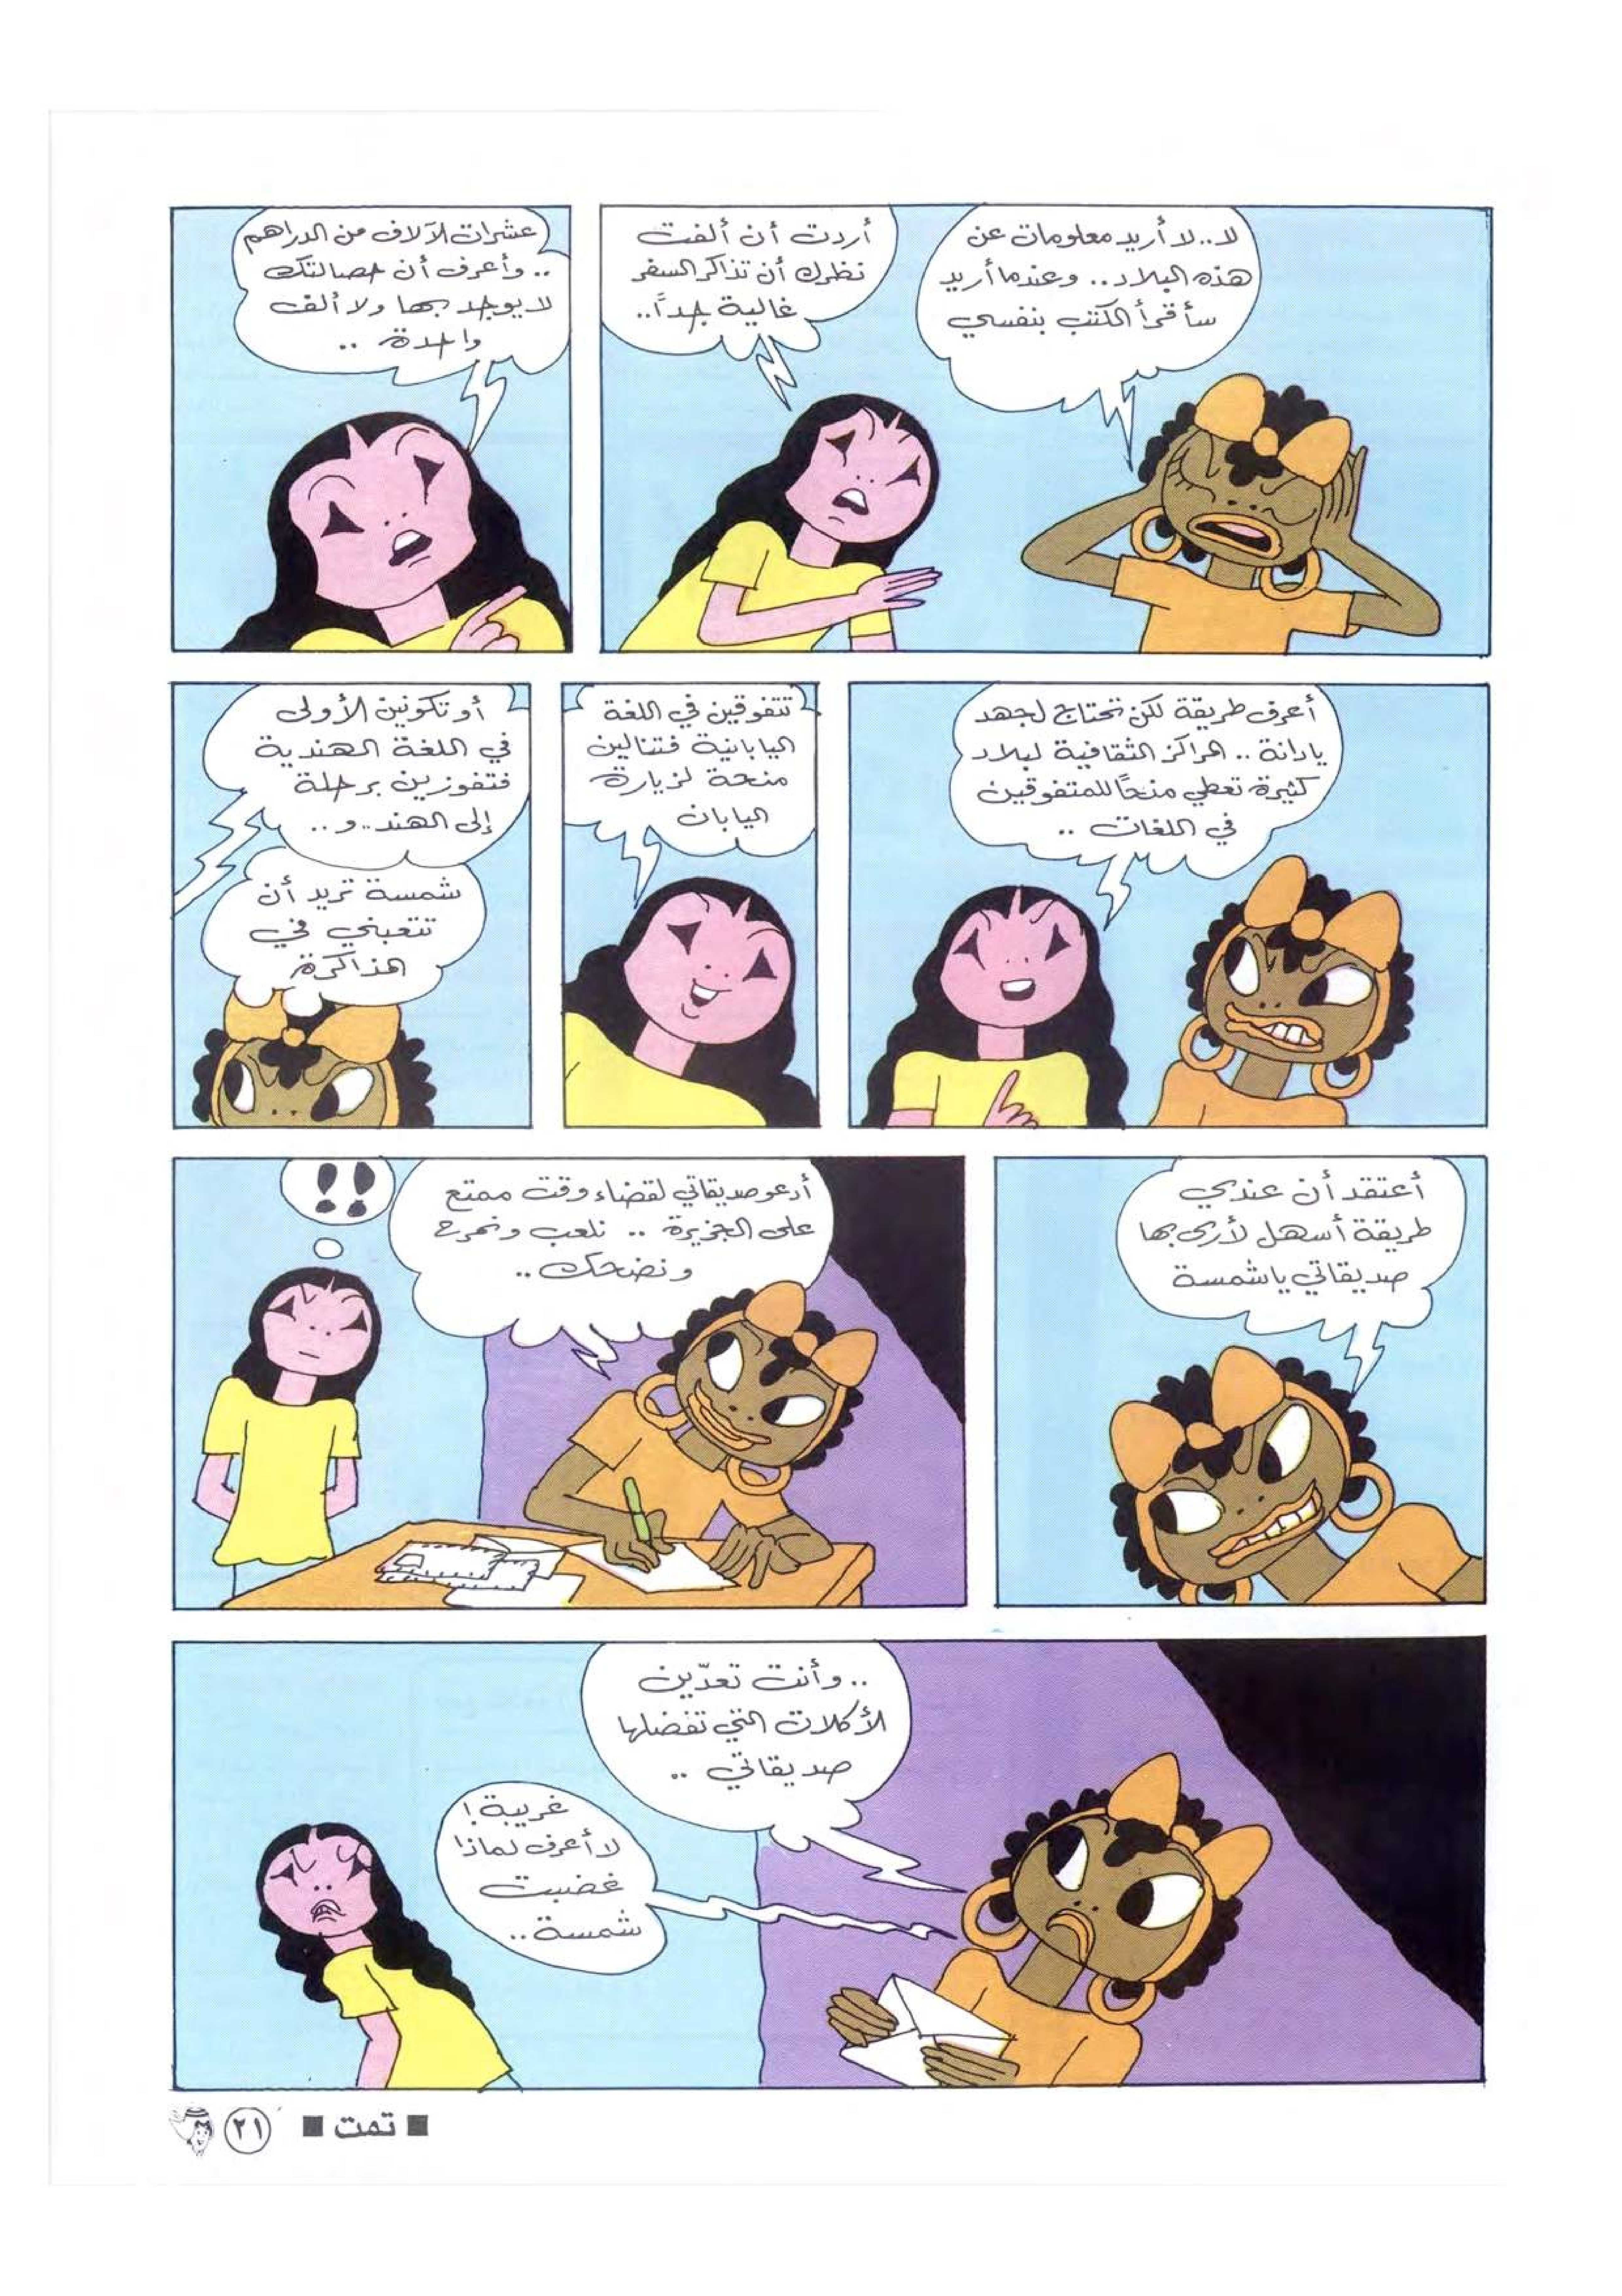 لا.. لا أريد معلومات عن
هذه البلاد.. وعندما أريد
سأقرأ الكتب بنفسي
أردت أن ألفت
نظرك أن تذاكر السفر
غالية جداً..
عشرات الآلاف من الدراهم
.. وأعرف أن حصالتك
لا يوجد بها ولا ألف
واحدة ..
أعرف طريقة لكن تحتاج لجهد
يا دانة .. المراكز الثقافية لبلاد
كثيرة تعطي منحاً للمتفوقين
في اللغات ..
تتفوقين في اللغة
اليابانية فتنالين
منحة لزيارة
اليابان
أو تكونين الأولى
في اللغة الهندية
فتفوزين برحلة
إلى الهند .. و ..
شمسة تريد أن
تتعبني في
المذاكرة
أعتقد أن عندي
طريقة أسهل لأرى بها
صديقاتي يا شمسة
أدعو صديقاتي لقضاء وقت ممتع
على الجزيرة .. نلعب ونمرح
ونضحك ..
!!
.. وأنت تعدّين
الأكلات التي تفضلها
صديقاتي ..
غريبة !
لا أعرف لماذا
غضبت
شمسة ..
■ تمت ■
٢١